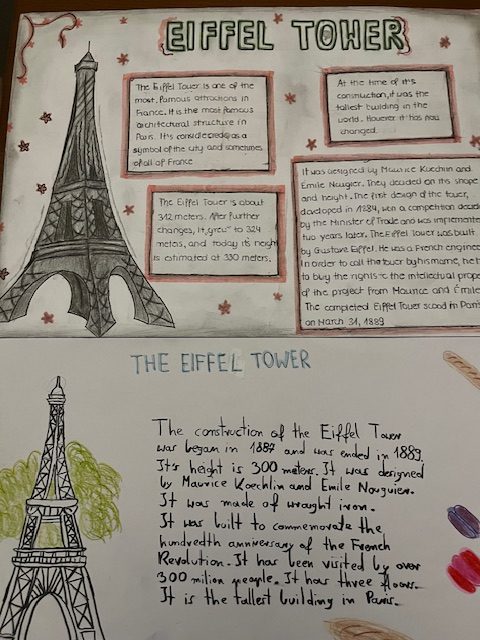 EIFFEL TOWER
The Eiffel Tower is one of the
most famous attractions in
France. It is the most famous
architectural structure in
Paris. It's considered as a
symbol of the city and sometimes
of all of France
At the time of it's
construction, it was the
tallest building in the
world. However it has now
changed.
The Eiffel Tower is about
312 meters. After further
changes, it grew to 324
meters, and today it's height
is estimated at 330 meters.
It was designed by Maurice Kuechlin and
Emile Nougier. They decided on its shape
and height. The first design of the tower,
developed in 1884, won a competition
by the Minister of Trade and was implemente
two years later. The Eiffel Tower was built
by Gustave Eiffel. He was a French enginee
In order to call the tower by his name, he
to buy the rights to the intellectual prope
of the project from Maurice and Émile
The completed Eiffel Tower stood in Paris
on March 31, 1889
THE EIFFEL TOWER
The construction of the Eiffel Tower
was began in 1887 and was ended in 1889.
It's height is 300 meters. It was designed
by Maurice Koechlin and Emile Nouguier.
It was made of wraught iron.
It was built to commemorate the
hundredth anniversary of the French
Revolution. It has been visited by over
300 milion people. It has three floors.
It is the tallest building in Paris.